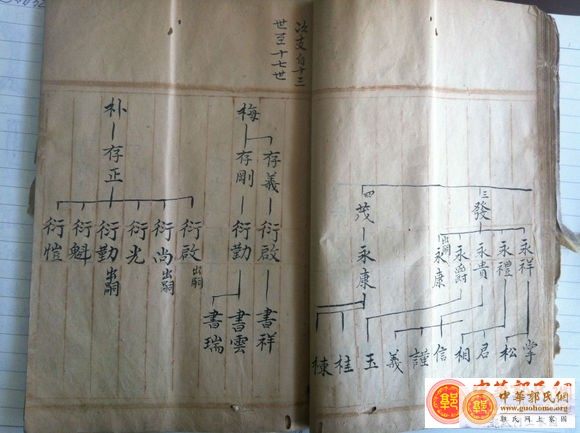 三
發
四
茂
永祥
永禮
永貴
永爵
永康
出嗣
永康
松
君
相
信
謹
義
玉
桂
棟
法支自十三
世至十七世
梅
存義
存剛
衍啟
衍勤
書祥
書雲
書瑞
朴
存正
衍啟
出嗣
衍尚
出嗣
衍光
衍勤
出嗣
衍魁
衍愷
中華郭氏網
郭氏网上家園